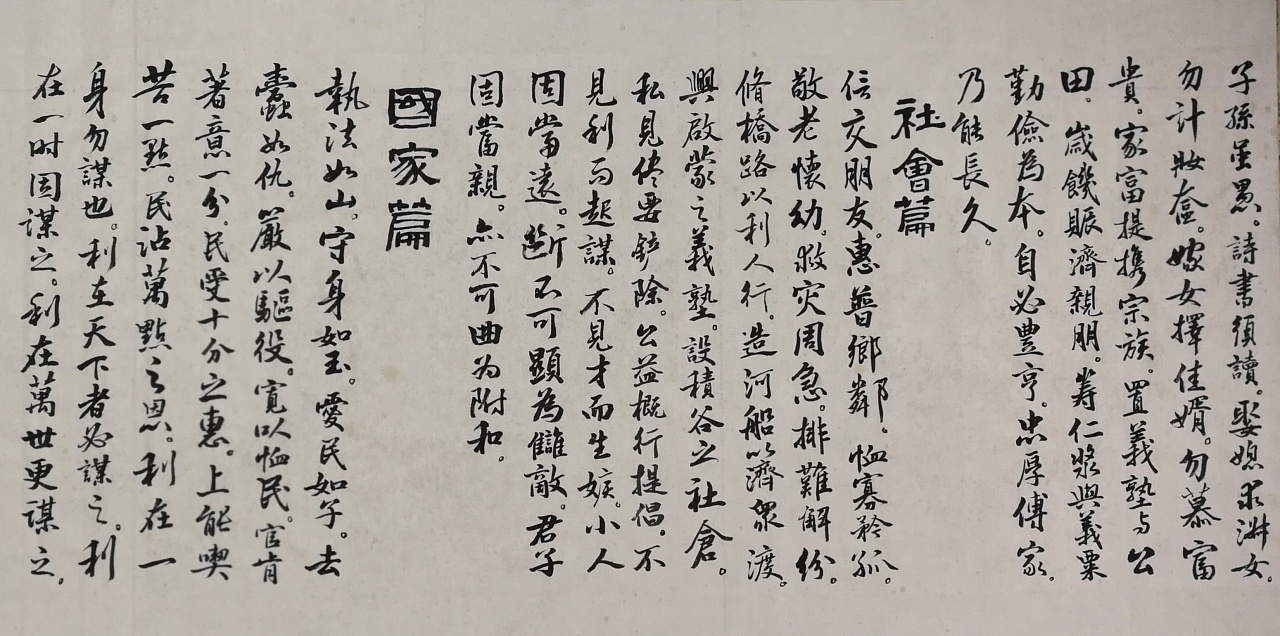 子孫虽愚。詩書須讀。娶媳求淑女。
勿計妝奩。嫁女擇佳婿。勿慕富
貴。家富提攜宗族。置義塾与公
田。歲饑賑濟親朋。筹仁漿與義粟
勤儉為本。自必豊亨。忠厚傳家。
乃能長久。
社會篇
信交朋友。惠普鄉鄰。恤寡矜孤。
敬老懷幼。救灾周急。排難解紛。
脩橋路以利人行。造河船以濟眾渡。
興啟蒙之義塾。設積谷之社倉。
私見侭要鏟除。公益概行提倡。不
見利而起謀。不見才而生嫉。小人
固當遠。断不可顯為讎敵。君子
固當親。亦不可曲为附和。
國家篇
執法如山。守身如玉。愛民如子。去
蠹如仇。嚴以驅役。寬以恤民。官肯
著意一分。民受十分之惠。上能喫
苦一點。民沾萬點之恩。利在一
身勿謀也。利在天下者必謀之。利
在一时固謀之。利在萬世更謀之。